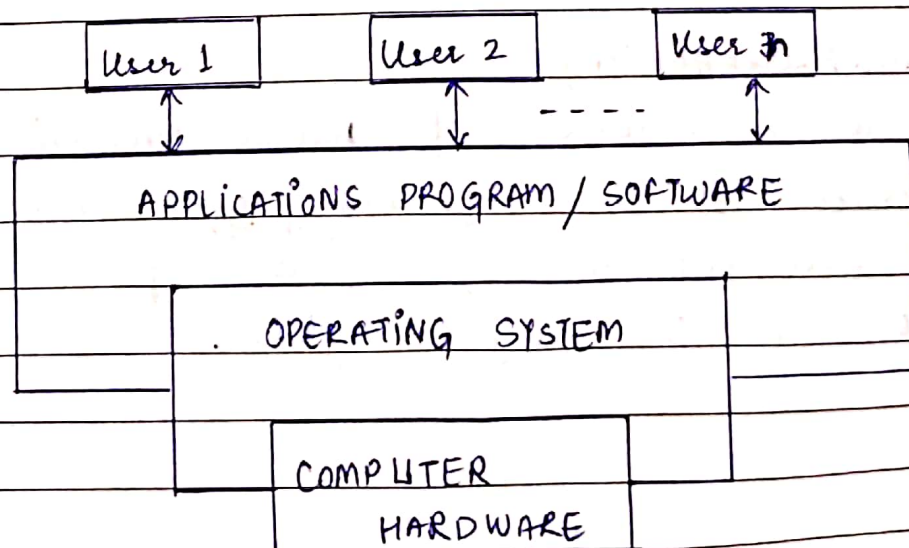 User 1 User 2 User n
APPLICATIONS PROGRAM / SOFTWARE
OPERATING SYSTEM
COMPUTER
HARDWARE